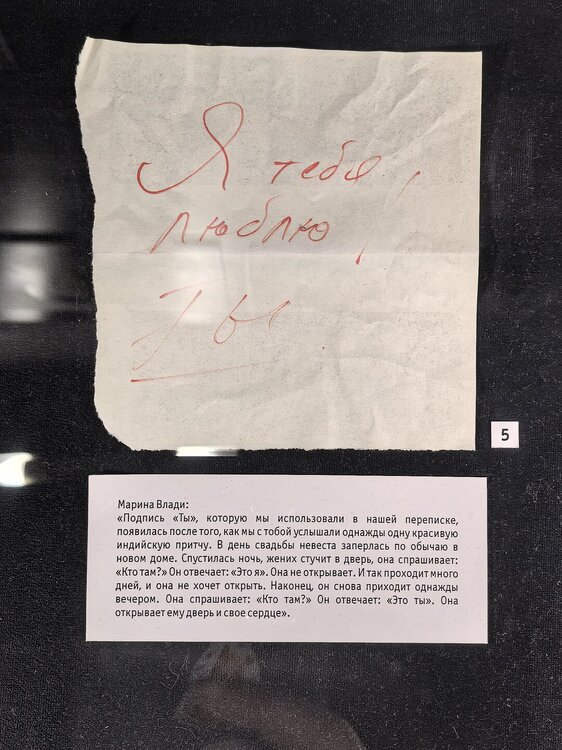 Я тебя
люблю!
Ты
5
Марина Влади:
«Подпись «Ты», которую мы использовали в нашей переписке,
появилась после того, как мы с тобой услышали однажды одну красивую
индийскую притчу. В день свадьбы невеста заперлась по обычаю в
новом доме. Спустилась ночь, жених стучит в дверь, она спрашивает:
«Кто там?» Он отвечает: «Это я». Она не открывает. И так проходит много
дней, и она не хочет открыть. Наконец, он снова приходит однажды
вечером. Она спрашивает: «Кто там?» Он отвечает: «Это ты». Она
открывает ему дверь и свое сердце».